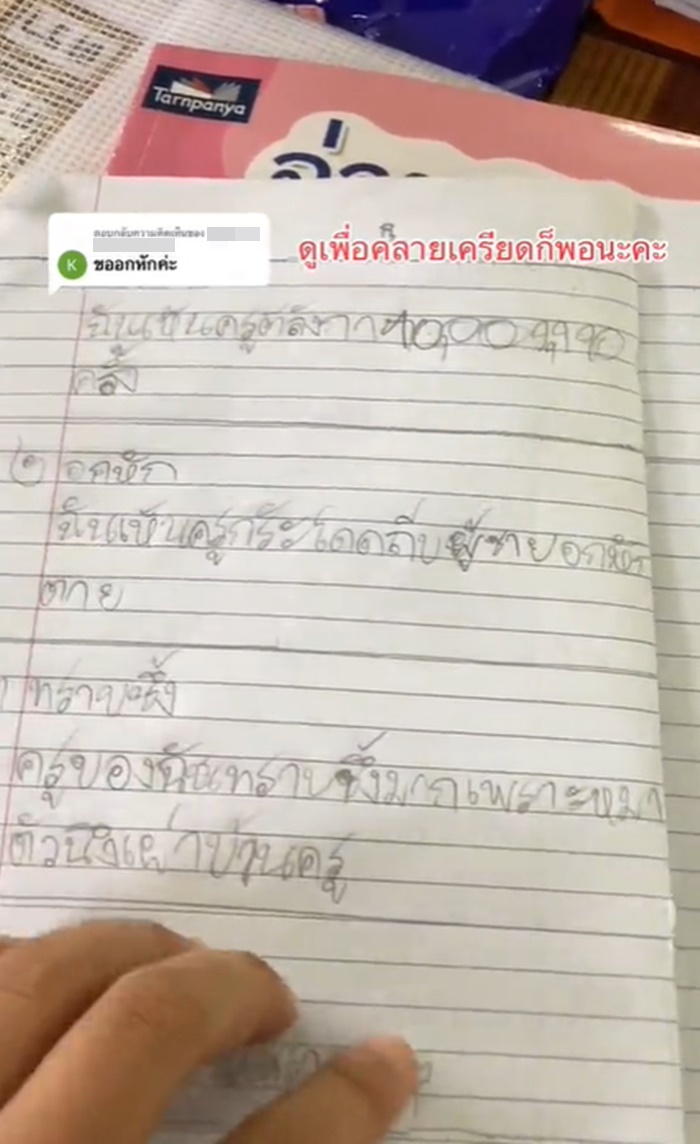 Tarnpanya
ตอบกลับความคิดเห็นของ
K ขออกหักค่ะ
ดูเพื่อคลายเครียดก็พอนะคะ
ฉันเห็นครูตีลังกา
ครั้ง
๒ อกหัก
ฉันเห็นครูกระโดดถีบผู้ชายอกหัก
ตาย
ทราบซึ้ง
ครูของฉันทราบซึ้งมากเพราะหมา
ตัวนึงเผ่าบ้านครู